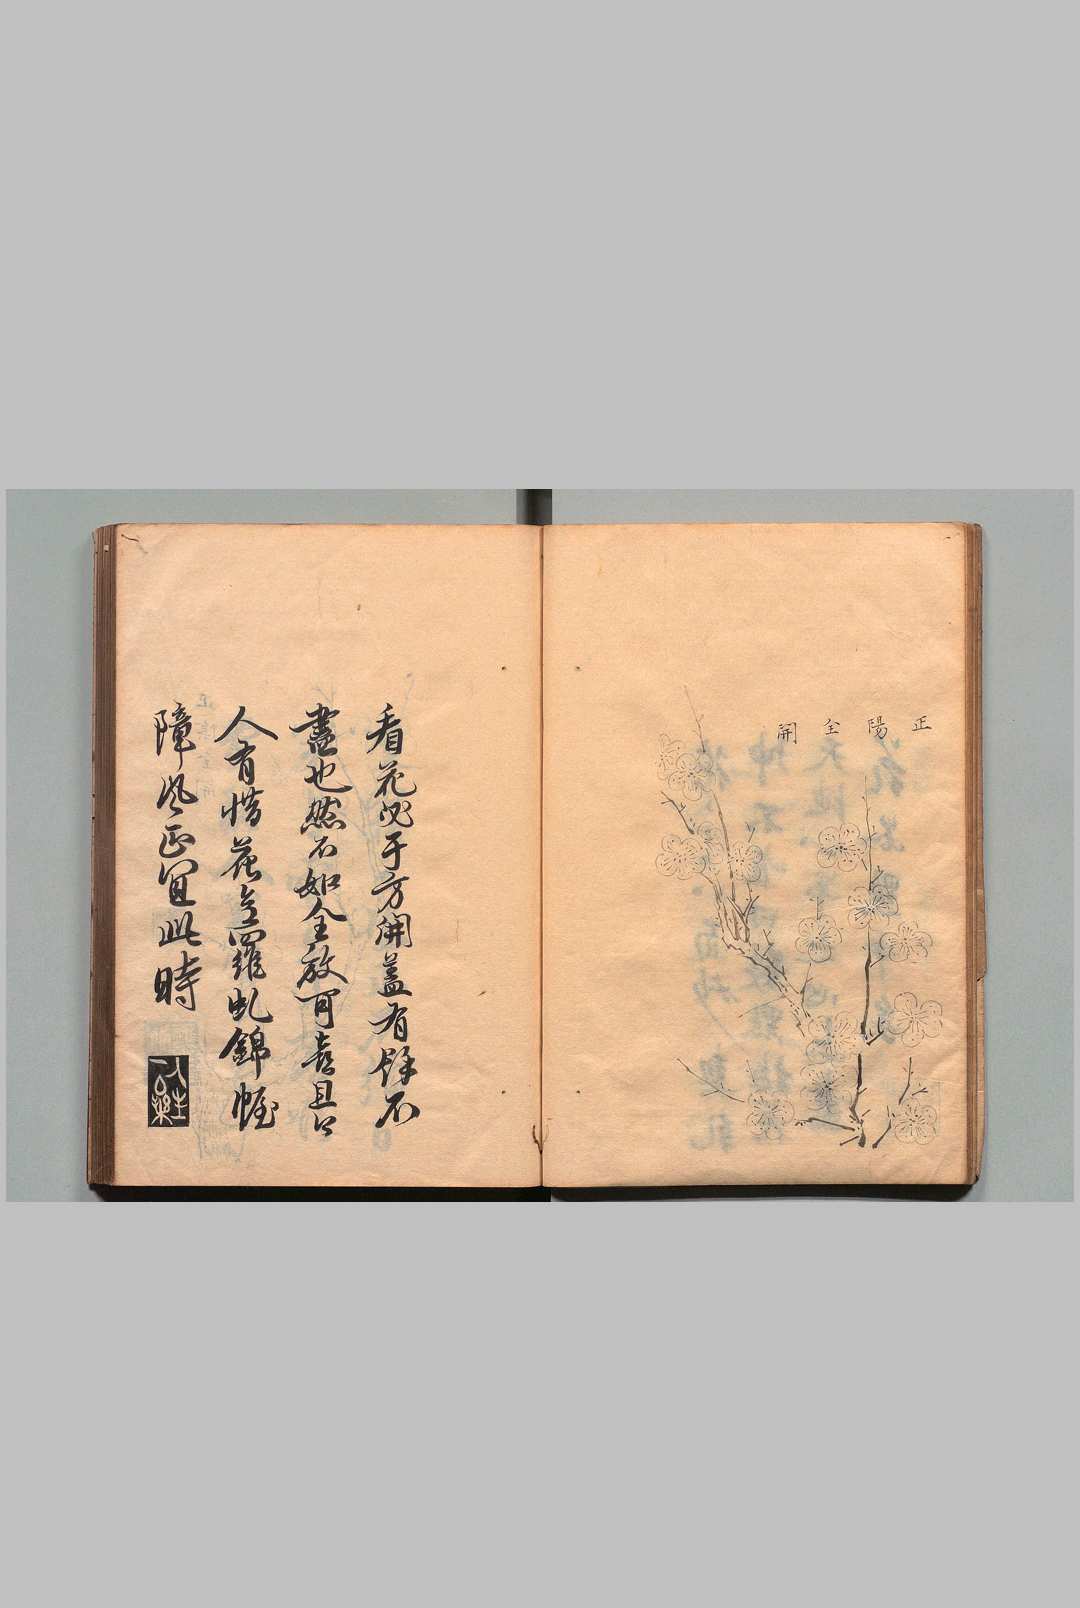 正陽全開
看花必于方開蓋有餘不
盡也然不如全放可喜且
人有惜花
羅
錦幄
障風正宜此時